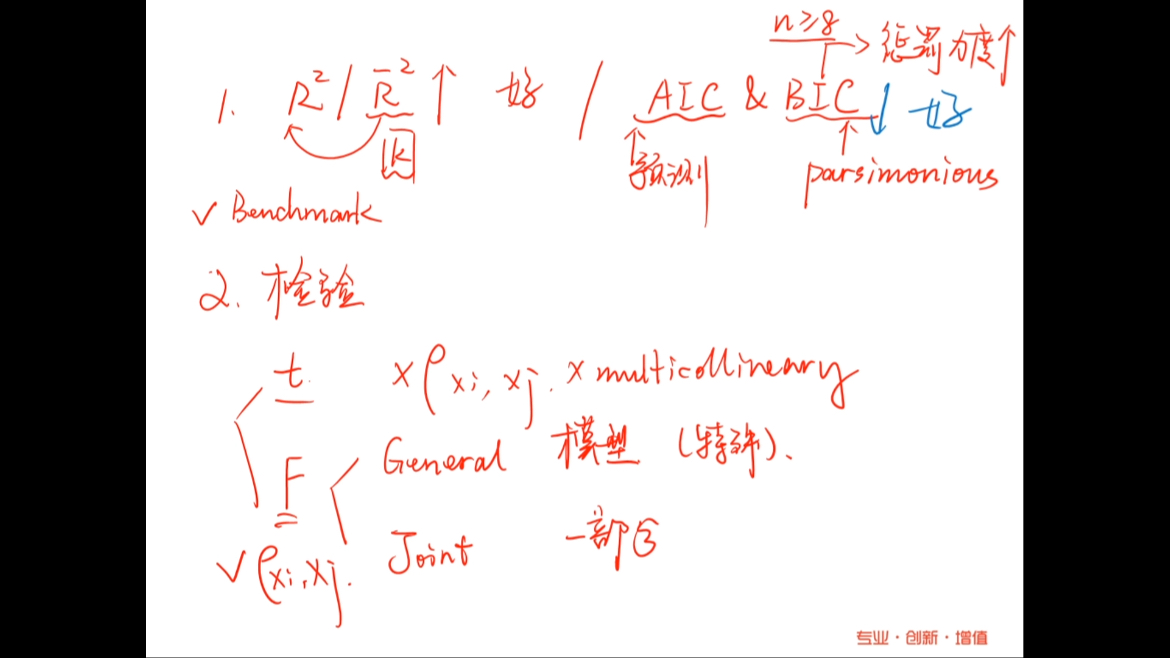 n≥8 → 惩罚力度↑
1. R²/R̄²↑ 好 / AIC & BIC↓ 好
k 预测 parsimonious
✓ Benchmark
2. 检验
t. × ρxi, xj. × multicollineary
General 模型 (特殊).
F
Joint 一部分
✓ ρxi, xj.
专业·创新·增值